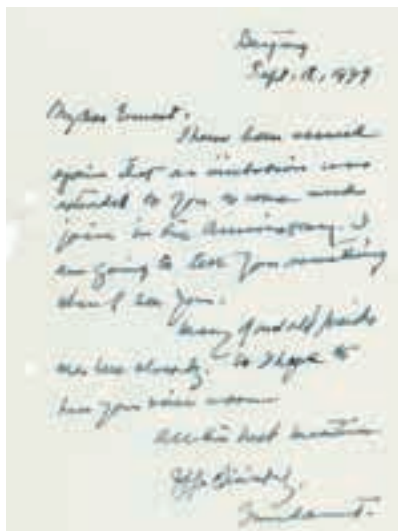 Beijing
Sept. 18, 1979
My dear Ernest,
I have been assured
again that an invitation was
extended to you to come and
join in the Anniversary. I
am going to tell you something
when I see you.
Many good old friends
are here already. So I hope to
see you
All the best